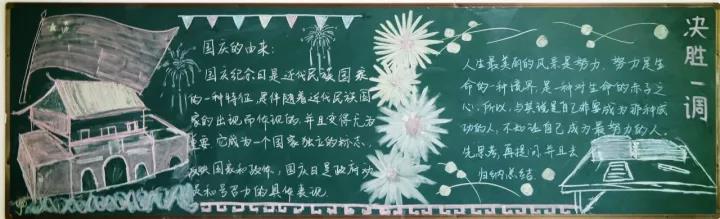 国庆的由来:
国庆纪念日是近代民族国家
的一种特征,是伴随着近代民族国
家的出现而出现的,并且变得尤为
重要。它成为一个国家独立的标志,
反映国家和政体,国庆日是政府动
员和号召力的具体表现。
人生最美丽的风采是努力,努力是生
命的一种境界,是一种对生命的赤子之
心,所以,与其说是自己非要成为那种成
功的人,不如让自己成为最努力的人。
先思考,再提问,并且去
归纳总结。
决胜一调